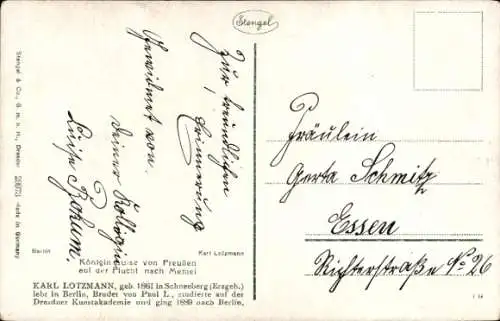 Stengel
Zur freundlichen
Erinnerung
Gewidmet von
Deiner Kollegin
Luise Bokum.
Fräulein
Gerta Schmitz
Essen
Richterstraße No 26
Stengel & Co., G. m. b. H., Dresden
Made in Germany
Berlin
Karl Lotzmann
Königin Luise von Preußen
auf der Flucht nach Memel
KARL LOTZMANN, geb. 1861 in Schneeberg (Erzgeb.)
lebt in Berlin, Bruder von Paul L., studierte auf der
Dresdner Kunstakademie und ging 1889 nach Berlin.